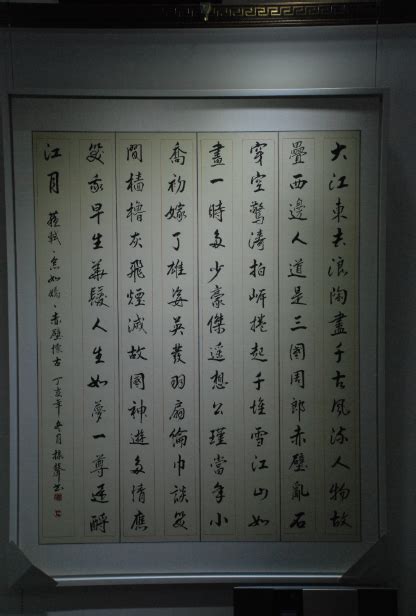 大江東去浪淘盡千古風流人物故
壘西邊人道是三國周郎赤壁亂石
穿空驚濤拍岸捲起千堆雪江山如
畫一時多少豪傑遥想公瑾當年小
喬初嫁了雄姿英發羽扇倫巾談笑
間檣櫓灰飛煙滅故國神遊多情應
笑我早生華髮人生如夢一尊還酹
江月 蘇軾·念奴嬌·赤壁懷古 丁亥年 月 书